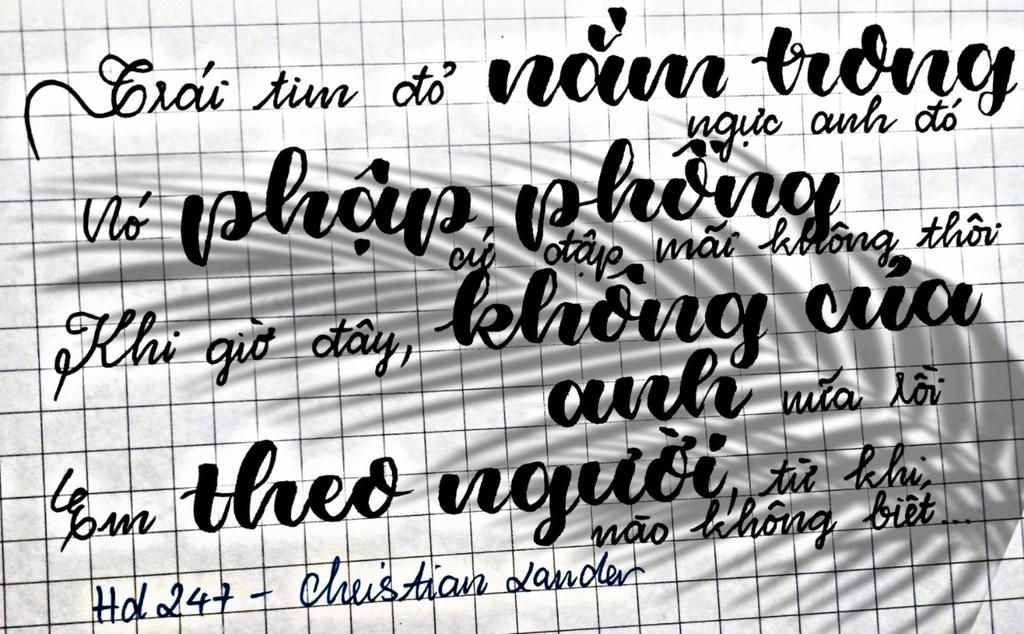 Trái tim đỏ nằm trong
ngực anh đó
Nó phập phồng
cứ đập mãi không thôi
Khi giờ đây, không của
anh nữa rồi
Em theo người, từ khi
nào không biết...
Hd 247 - Christian Lander